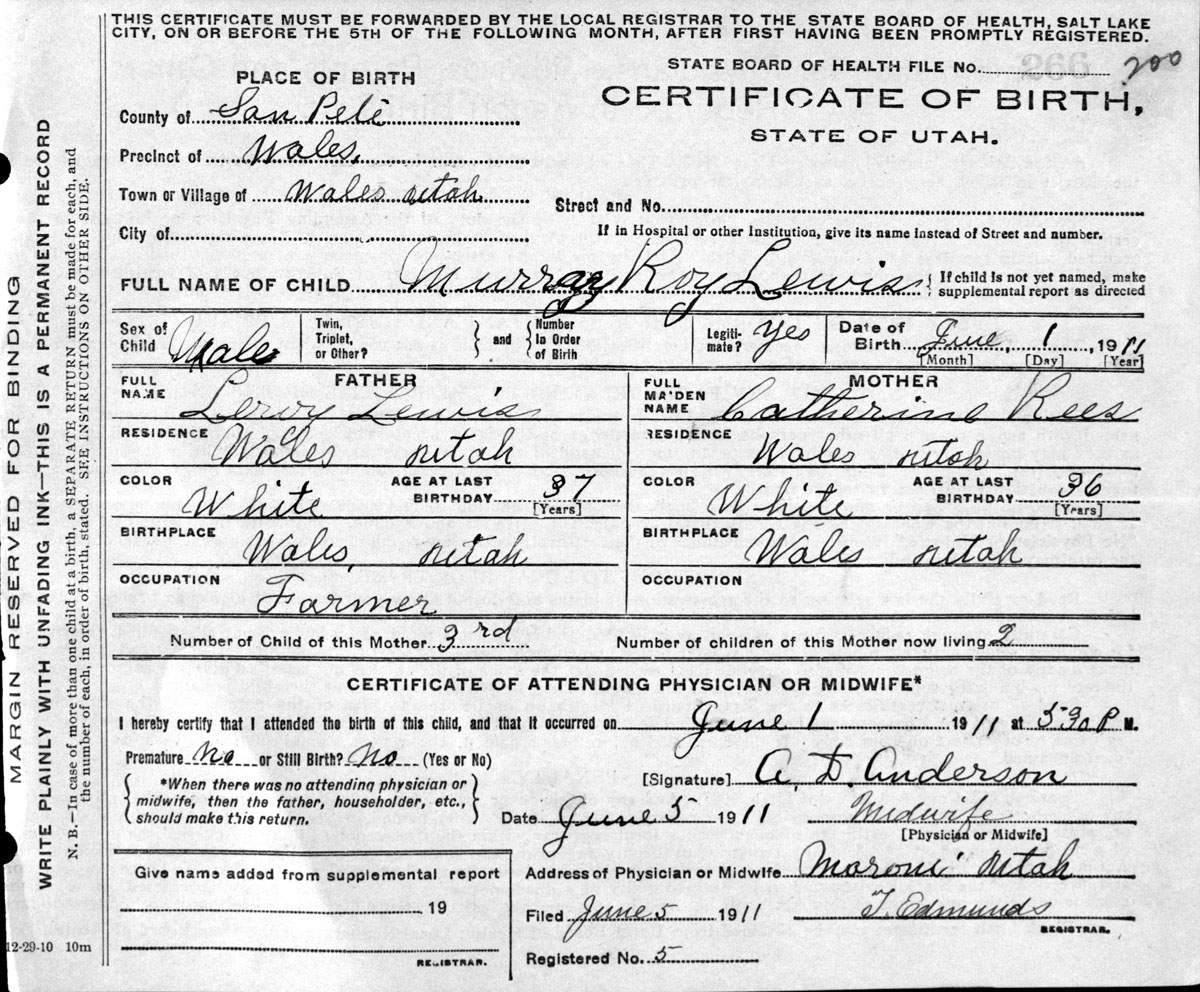 THIS CERTIFICATE MUST BE FORWARDED BY THE LOCAL REGISTRAR TO THE STATE BOARD OF HEALTH, SALT LAKE
CITY, ON OR BEFORE THE 5TH OF THE FOLLOWING MONTH, AFTER FIRST HAVING BEEN PROMPTLY REGISTERED.
STATE BOARD OF HEALTH FILE No. 266 200
CERTIFICATE OF BIRTH,
STATE OF UTAH.
PLACE OF BIRTH
County of San Pete
Precinct of Wales,
Town or Village of Wales Utah
City of
Street and No.
If in Hospital or other Institution, give its name instead of Street and number.
FULL NAME OF CHILD Murray Roy Lewis { If child is not yet named, make
supplemental report as directed
Sex of
Child Male
Twin,
Triplet,
or Other?
} and {
Number
in Order
of Birth
Legiti-
mate? Yes
Date of
Birth June, 1, 1911
[Month] [Day] [Year]
FATHER
FULL
NAME Leroy Lewis
RESIDENCE Wales Utah
COLOR White AGE AT LAST
BIRTHDAY 37
[Years]
BIRTHPLACE Wales, Utah
OCCUPATION Farmer
MOTHER
FULL
MAIDEN
NAME Catherine Rees
RESIDENCE Wales Utah
COLOR White AGE AT LAST
BIRTHDAY 36
[Years]
BIRTHPLACE Wales Utah
OCCUPATION
Number of Child of this Mother 3rd Number of children of this Mother now living 2
CERTIFICATE OF ATTENDING PHYSICIAN OR MIDWIFE*
I hereby certify that I attended the birth of this child, and that it occurred on June 1 1911 at 530 P M.
Premature no or Still Birth? no (Yes or No)
{ *When there was no attending physician or
midwife, then the father, householder, etc.,
should make this return. }
[Signature] A. D. Anderson
Date June 5 1911 Midwife
[Physician or Midwife]
Address of Physician or Midwife Moroni Utah
Filed June 5 1911 T. Edmunds
REGISTRAR.
Registered No. 5
Give name added from supplemental report
, 19
REGISTRAR.
12-29-10 10m
MARGIN RESERVED FOR BINDING
WRITE PLAINLY WITH UNFADING INK—THIS IS A PERMANENT RECORD
N. B.—In case of more than one child at a birth, a SEPARATE RETURN must be made for each, and
the number of each, in order of birth, stated. SEE INSTRUCTIONS ON OTHER SIDE.